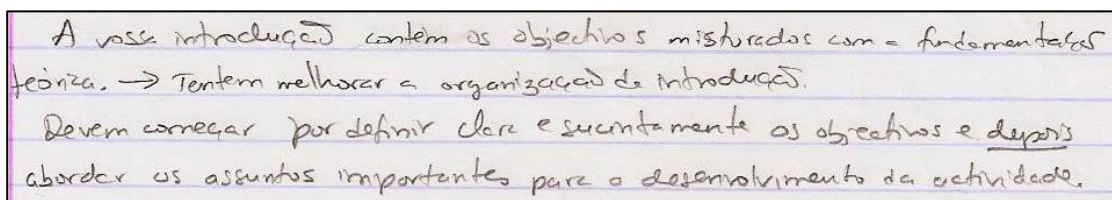 A vossa introdução contém os objectivos misturados com a fundamentação
teórica. → Tentem melhorar a organização da introdução.
Devem começar por definir clara e sucintamente os objectivos e depois
abordar os assuntos importantes para o desenvolvimento da actividade.